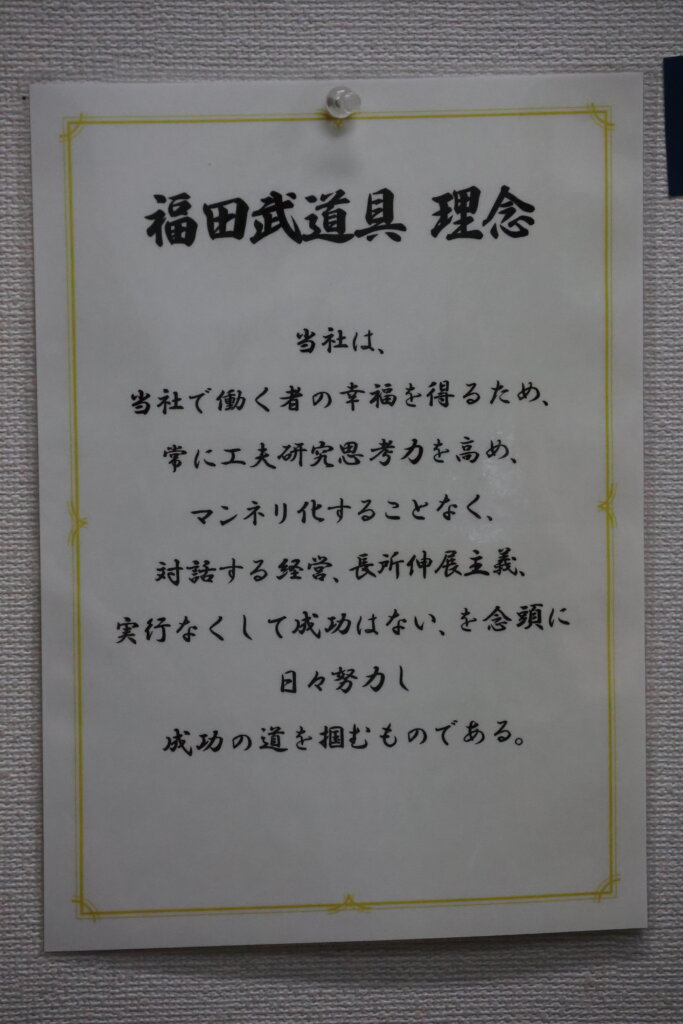 福田武道具 理念
当社は、
当社で働く者の幸福を得るため、
常に工夫研究思考力を高め、
マンネリ化することなく、
対話する経営、長所伸展主義、
実行なくして成功はない、を念頭に
日々努力し
成功の道を掴むものである。